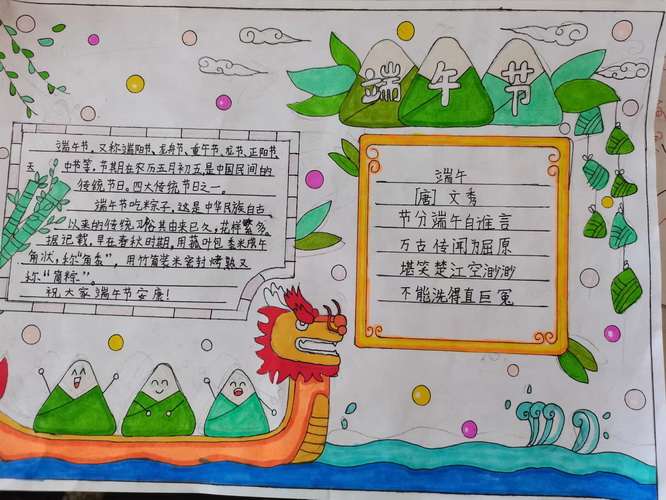 端午节
端午节，又称端阳节、龙舟节、重午节、龙节、正阳节、天
中节等，节期在农历五月初五，是中国民间的
传统节日。四大传统节日之一。
端午节吃粽子，这是中华民族自古
以来的传统习俗其由来已久，花样繁多。
据记载，早在春秋时期，用菰叶包黍米成牛
角状，称"角黍"，用竹筒装米密封烤熟又
称"筒粽"。
祝大家端午节安康！
端午
[唐] 文秀
节分端午自谁言
万古传闻为屈原
堪笑楚江空渺渺
不能洗得直巨冤